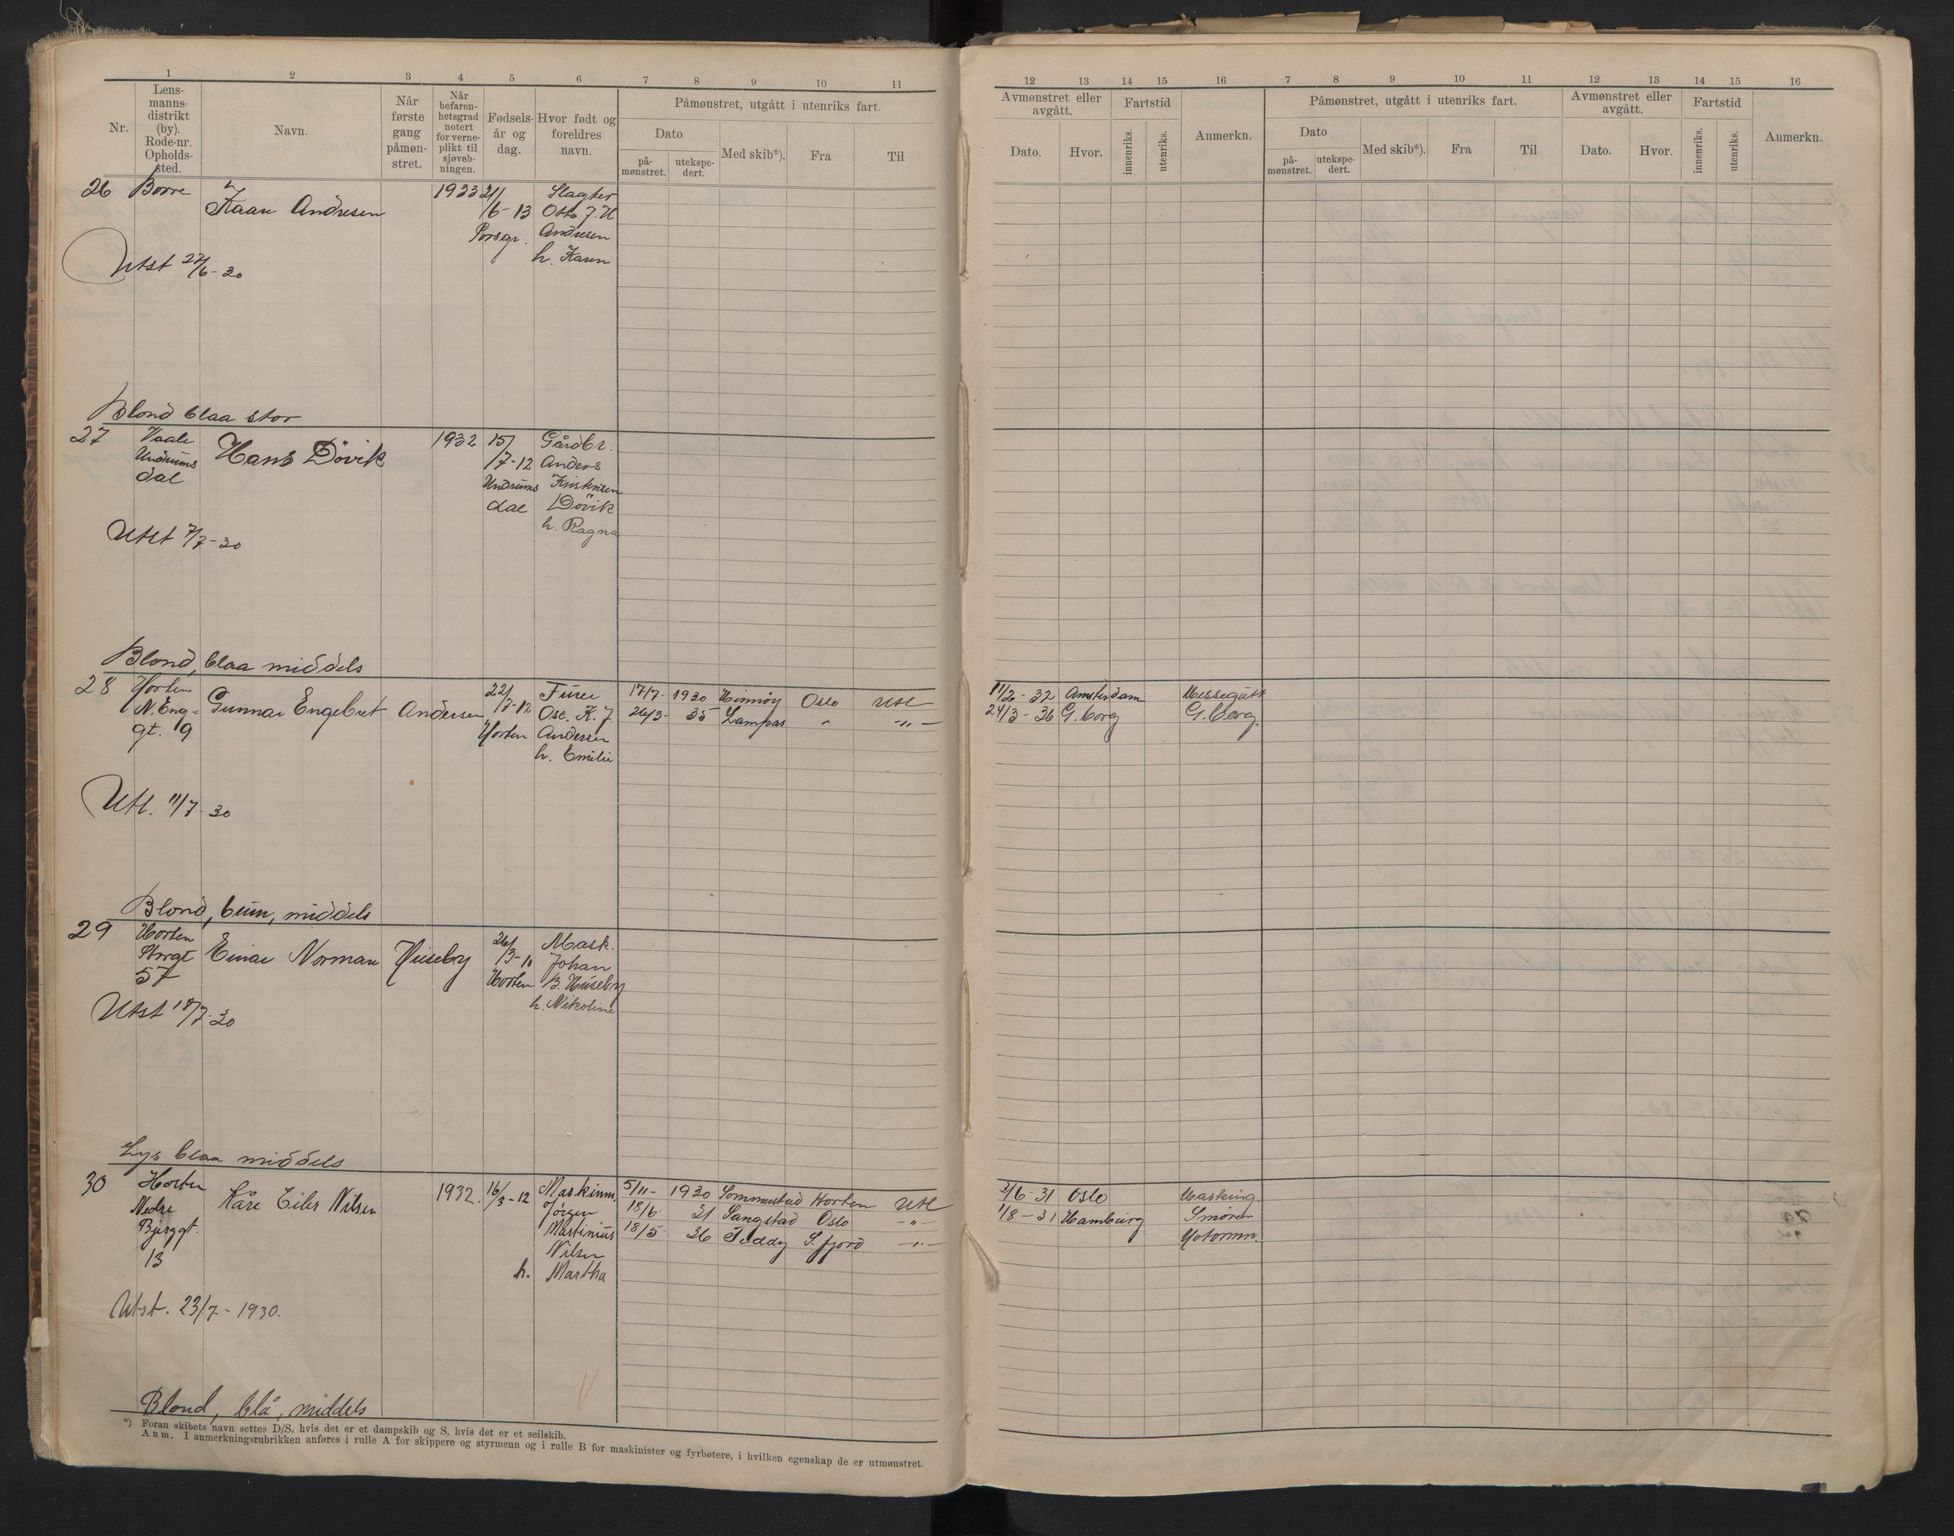 1 2 3 4 5 6 7 8 9 10 11
Nr. Lensmannsdistrikt (by). Rode-nr. Oppholdssted. Navn. Når første gang påmønstret. Når befarenhetsgrad notert for verneplikt til sjøvebningen. Fødselsår og dag. Hvor født og foreldres navn. Påmønstret, utgått i utenriks fart.
Dato
påmønstret. utekspedert. Med skib*). Fra Til
26 Borre Kaare Andresen 1933 21/6-13 Slagter
Otto J. H
Porsgr. Andresen
h. Karen
Utst 27/6-30
Blond blaa stor
27 Vaale Hans Dövik 1932 15/7-12 Gårdbr.
Undrums Anders
dal Undrums Kristensen
dal Dövik
h. Ragna
Utst 7/7-30
Blond, blaa middels
28 Horten Gunnar Engebret Andersen 22/7-12 Fürer 17/7- 1930 Hinnöy Oslo Utl
N. Eng- Osc. K. J. 26/3- 35 Lampas " -"-
gt. 9 Horten Andersen
h. Emilie
Utl. 11/7-30
Blond, brun, middels
29 Horten Einar Norman Huseby 26/3-10 Mask.
Storgt Johan
57 Horten B. Huseby
h. Nikoline
Utst 18/7-30
Lys blaa middels
30 Horten Kåre Eiler Nilsen 1932. 16/3-12 Maskinm. 5/11- 1930 Sommerstad Horten Utl
Nedre Jørgen 18/6 31 Sangstad Oslo -"-
Byggt. Martinius 18/5- 36 Teddy S.fjord -"-
13 Nilsen
h. Martha
Utst. 23/7-1930.
Blond, blå, middels
*) Foran skibets navn settes D/S, hvis det er et dampskib og S, hvis det er et seilskib.
Anm. I anmerkningsrubrikken anføres i rulle A for skippere og styrmenn og i rulle B for maskinister og fyrbøtere, i hvilken egenskap de er utmønstret.
12 13 14 15 16 7 8 9 10 11 12 13 14 15 16
Avmønstret eller avgått. Fartstid Anmerkn. Påmønstret, utgått i utenriks fart. Avmønstret eller avgått. Fartstid Anmerkn.
Dato. Hvor. innenriks. utenriks. Dato påmønstret. utekspedert. Med skib*). Fra Til Dato. Hvor. innenriks. utenriks.
11/2-32 Amsterdam Messegutt
24/3-36 G.borg G.borg.
3/6-31 Oslo Masking.
1/8-31 Hamburg Smörer
Motormn.